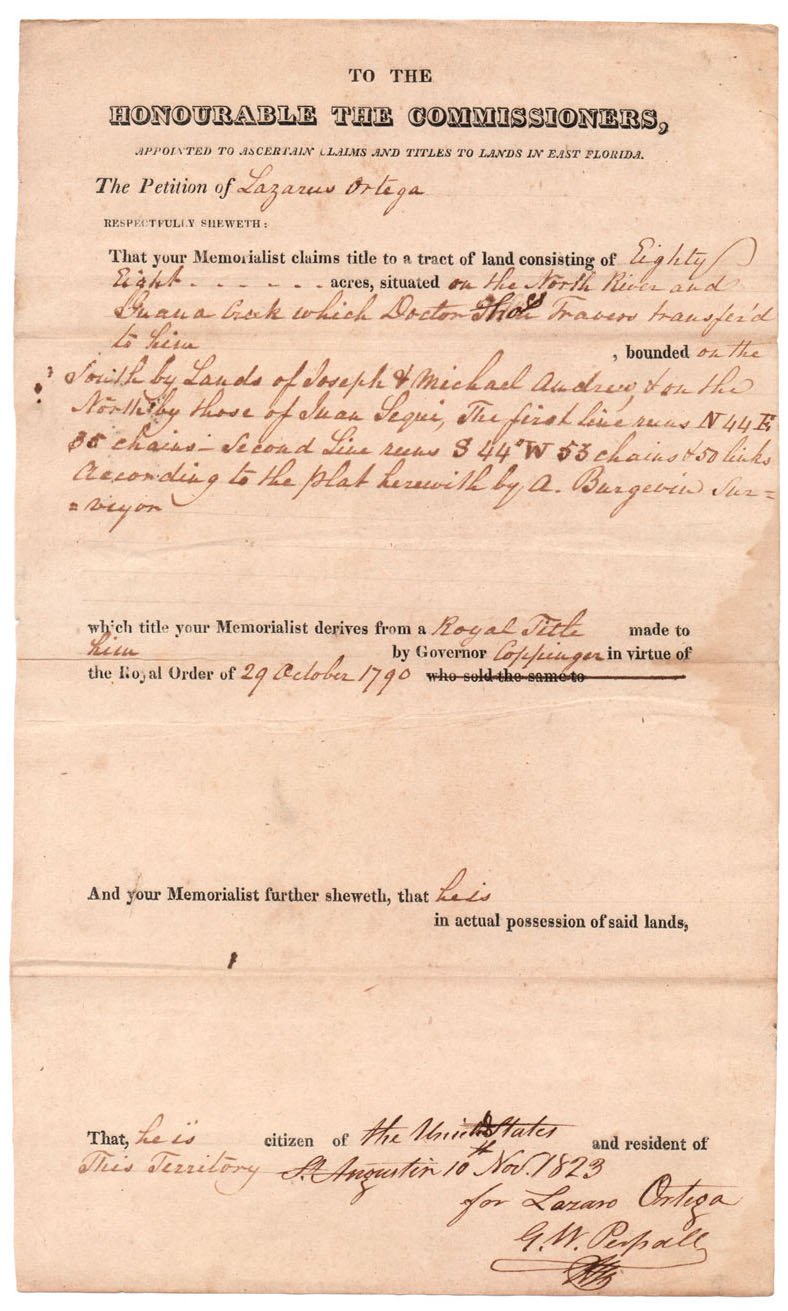 TO THE
HONOURABLE THE COMMISSIONERS,
APPOINTED TO ASCERTAIN CLAIMS AND TITLES TO LANDS IN EAST FLORIDA.
The Petition of Lazarus Ortega
RESPECTFULLY SHEWETH:
That your Memorialist claims title to a tract of land consisting of Eighty
Eight - - - - - - acres, situated on the North River and
Guana Creek which Doctor Thos Travers transfer'd
to him
, bounded on the
South by Lands of Joseph & Michael Andrew, & on the
North by those of Juan Sequi, The first line runs N 44 E
35 chains - Second Line runs S 44° W 53 chains & 50 links
According to the plat herewith by A. Burgevin Sur=
=veyor
which title your Memorialist derives from a Royal Title made to
him by Governor Coppinger in virtue of
the Royal Order of 29 October 1790 who sold the same to
And your Memorialist further sheweth, that he is
in actual possession of said lands,
That, he is citizen of the United States and resident of
This Territory St. Augustin 10th Nov. 1823
for Lazaro Ortega
G. W. Perpall